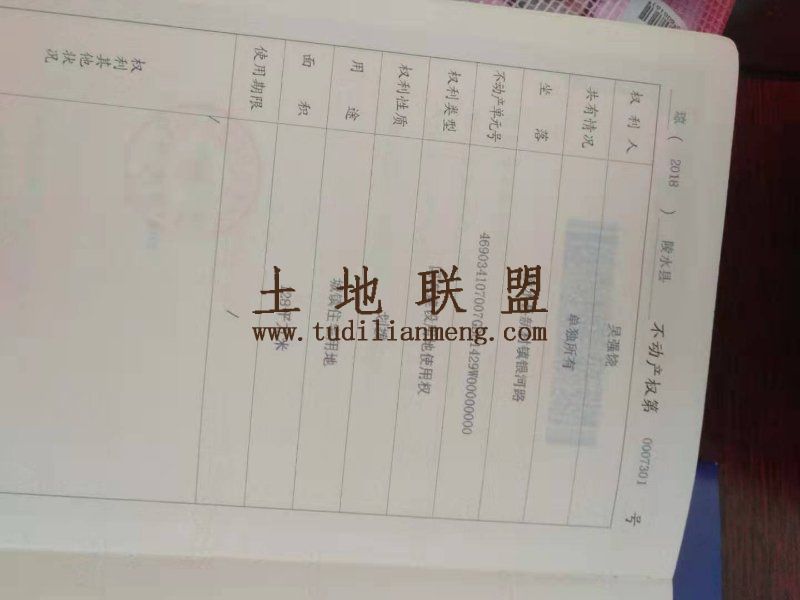 琼（ 2018 ） 陵水县 不动产权第 0007301 号
权利人 吴强饶
共有情况 单独所有
坐落 镇银河路
不动产单元号 429W00000000
权利类型 地使用权
权利性质
用途 城镇住 用地
面积 米
使用期限 /
权利其他状况 /
土地联盟
www.tudilianmeng.com